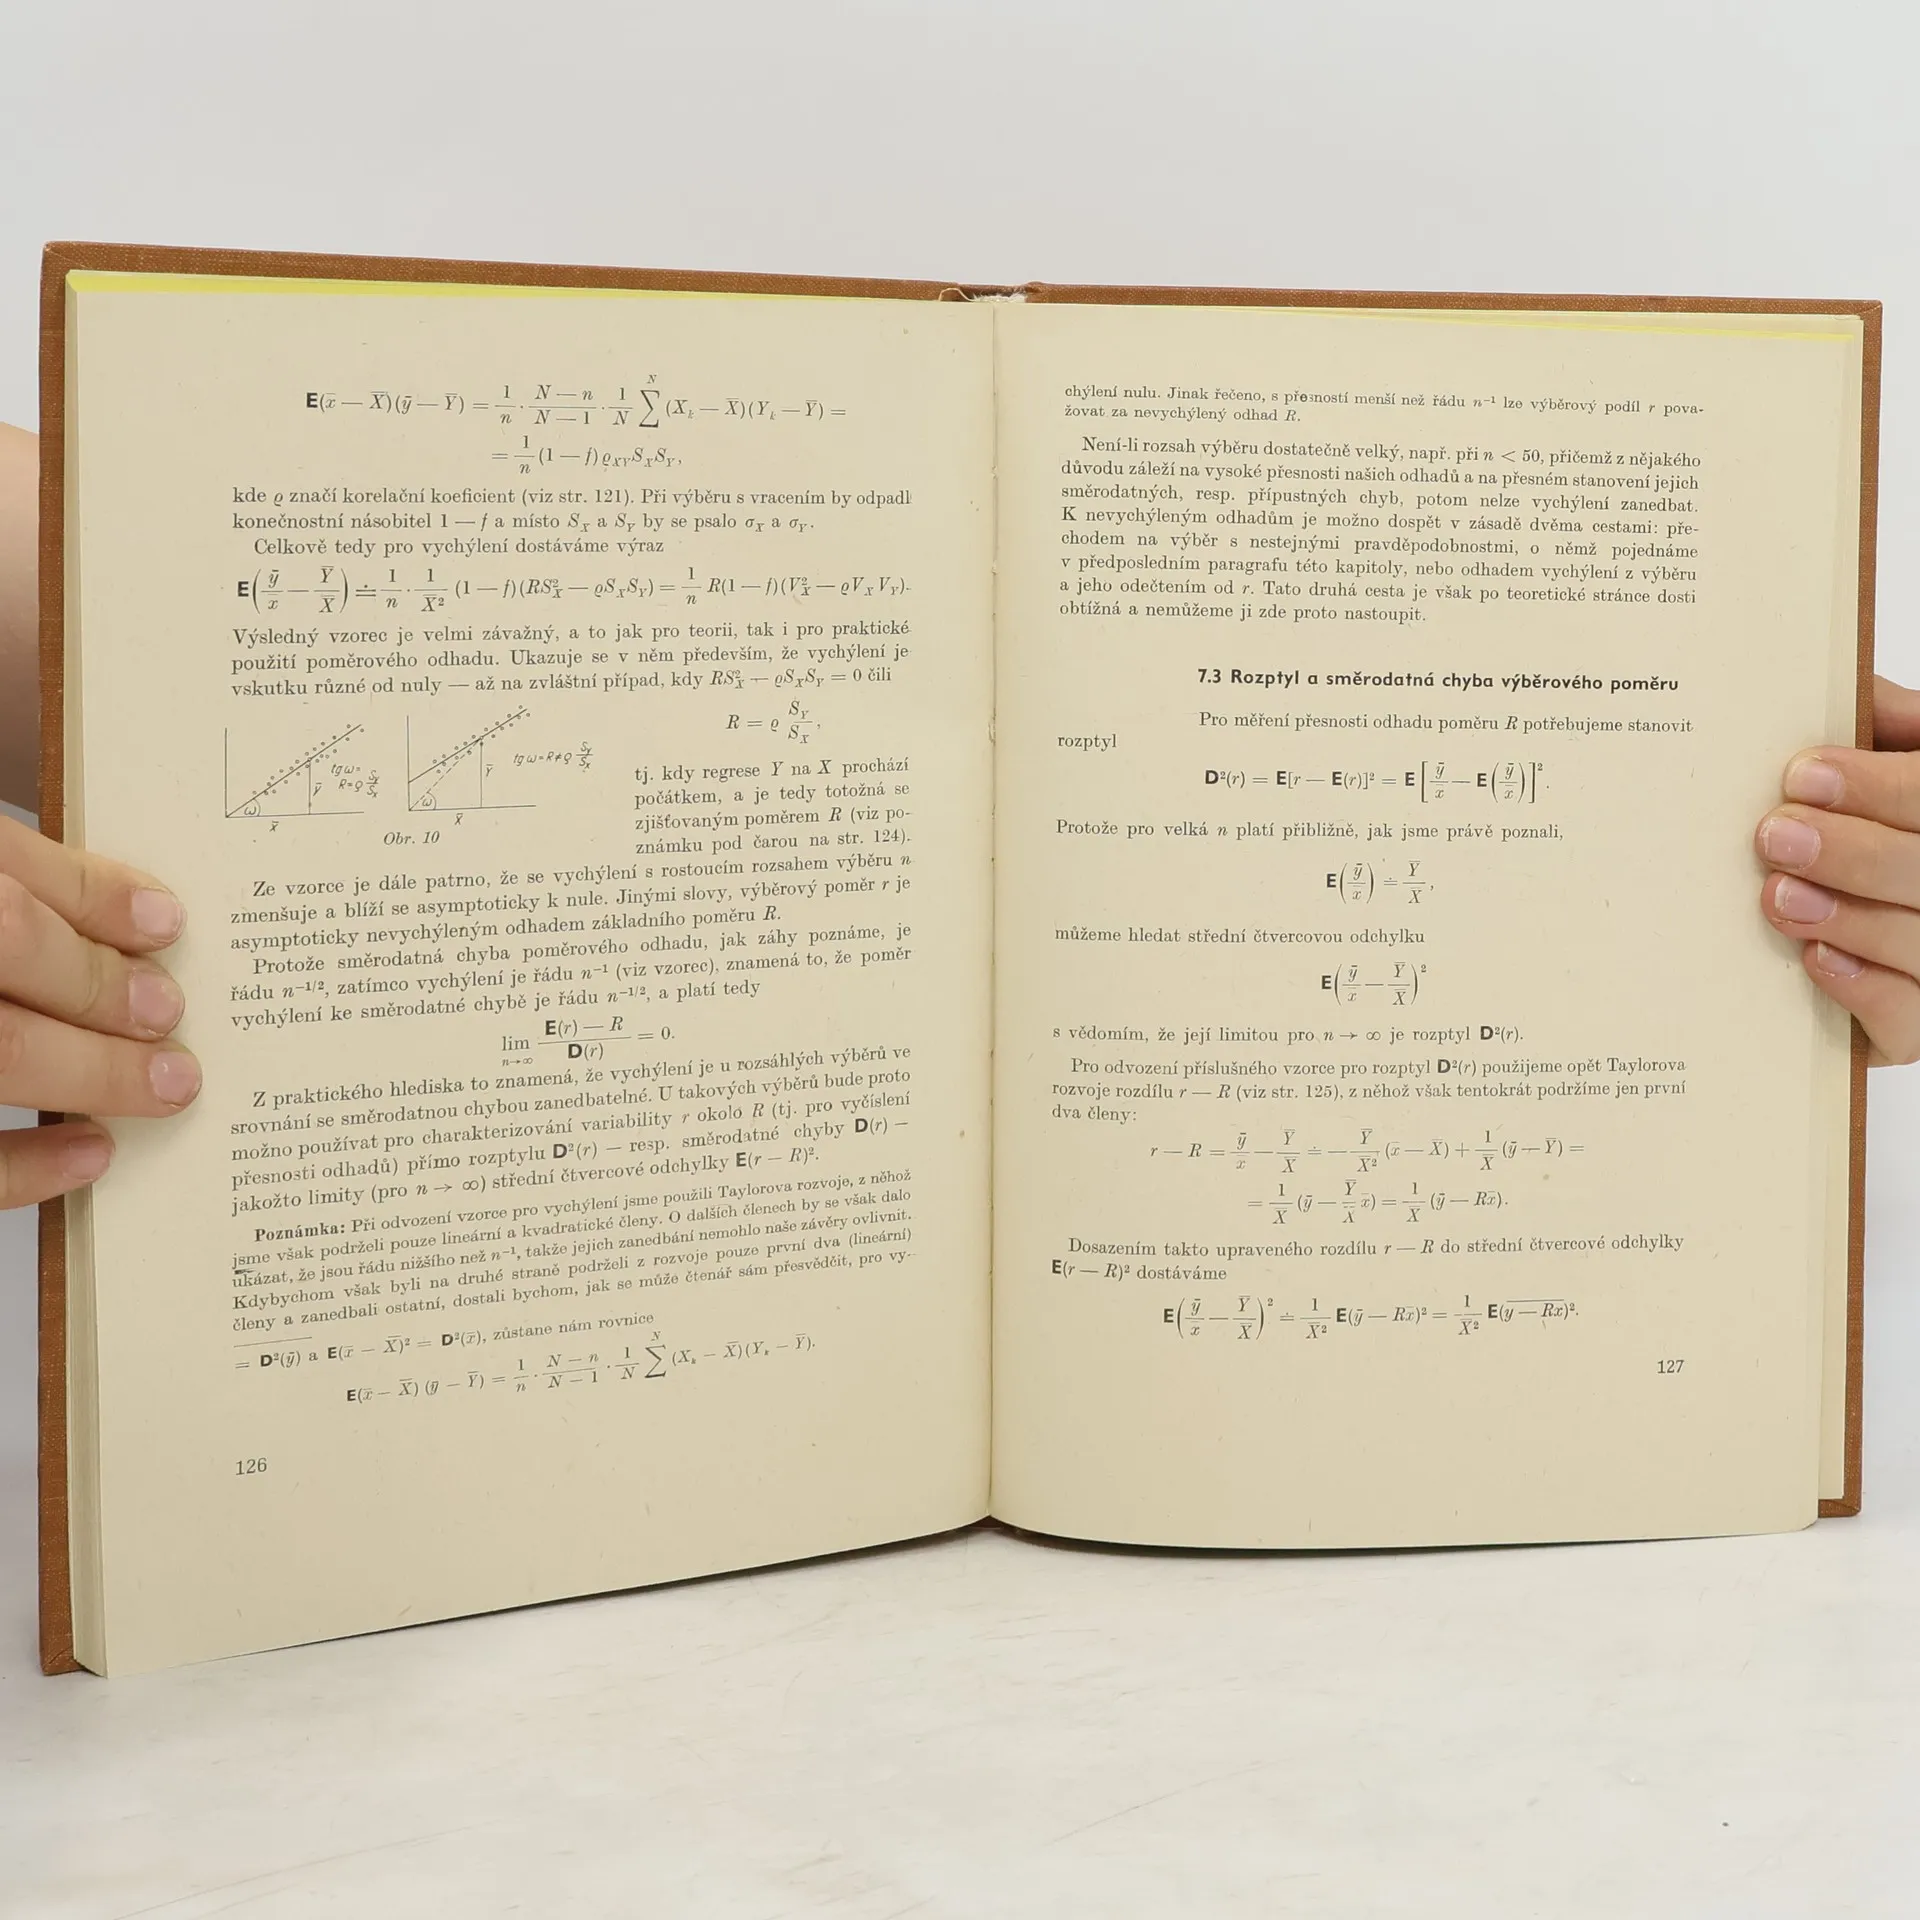 E(x̄ — X̄)(ȳ — Ȳ) = 1/n · (N — n)/(N — 1) · 1/N ∑^N (X_k — X̄)(Y_k — Ȳ) =
= 1/n (1 — f) ϱ_XY S_X S_Y,
kde ϱ značí korelační koeficient (viz str. 121). Při výběru s vracením by odpadl
konečnostní násobitel 1 — f a místo S_X a S_Y by se psalo σ_X a σ_Y.
Celkově tedy pro vychýlení dostáváme výraz
E(ȳ/x̄ — Ȳ/X̄) ≐ 1/n · 1/X̄² (1 — f)(RS²_X — ϱS_X S_Y) = 1/n R(1 — f)(V²_X — ϱV_X V_Y).
Výsledný vzorec je velmi závažný, a to jak pro teorii, tak i pro praktické
použití poměrového odhadu. Ukazuje se v něm především, že vychýlení je
vskutku různé od nuly — až na zvláštní případ, kdy RS²_X — ϱS_X S_Y = 0 čili
R = ϱ S_Y/S_X,
tg ω = R = ϱ S_y/S_x
Ȳ
ω
X̄
tg ω = R ≠ ϱ S_y/S_x
Ȳ
ω
X̄
Obr. 10
tj. kdy regrese Y na X prochází
počátkem, a je tedy totožná se
zjišťovaným poměrem R (viz po-
známku pod čarou na str. 124).
Ze vzorce je dále patrno, že se vychýlení s rostoucím rozsahem výběru n
zmenšuje a blíží se asymptoticky k nule. Jinými slovy, výběrový poměr r je
asymptoticky nevychýleným odhadem základního poměru R.
Protože směrodatná chyba poměrového odhadu, jak záhy poznáme, je
řádu n^(—1/2), zatímco vychýlení je řádu n^(—1) (viz vzorec), znamená to, že poměr
vychýlení ke směrodatné chybě je řádu n^(—1/2), a platí tedy
lim n→∞ (E(r) — R)/D(r) = 0.
Z praktického hlediska to znamená, že vychýlení je u rozsáhlých výběrů ve
srovnání se směrodatnou chybou zanedbatelné. U takových výběrů bude proto
možno používat pro charakterizování variability r okolo R (tj. pro vyčíslení
přesnosti odhadů) přímo rozptylu D²(r) — resp. směrodatné chyby D(r) —
jakožto limity (pro n → ∞) střední čtvercové odchylky E(r — R)².
Poznámka: Při odvození vzorce pro vychýlení jsme použili Taylorova rozvoje, z něhož
jsme však podrželi pouze lineární a kvadratické členy. O dalších členech by se však dalo
ukázat, že jsou řádu nižšího než n^(—1), takže jejich zanedbání nemohlo naše závěry ovlivnit.
Kdybychom však byli na druhé straně podrželi z rozvoje pouze první dva (lineární)
členy a zanedbali ostatní, dostali bychom, jak se může čtenář sám přesvědčit, pro vy-
= D²(ȳ) a E(x̄ — X̄)² = D²(x̄), zůstane nám rovnice
E(x̄ — X̄)(ȳ — Ȳ) = 1/n · (N — n)/(N — 1) · 1/N ∑^N (X_k — X̄)(Y_k — Ȳ).
126
chýlení nulu. Jinak řečeno, s přesností menší než řádu n^(—1) lze výběrový podíl r pova-
žovat za nevychýlený odhad R.
Není-li rozsah výběru dostatečně velký, např. při n < 50, přičemž z nějakého
důvodu záleží na vysoké přesnosti našich odhadů a na přesném stanovení jejich
směrodatných, resp. přípustných chyb, potom nelze vychýlení zanedbat.
K nevychýleným odhadům je možno dospět v zásadě dvěma cestami: pře-
chodem na výběr s nestejnými pravděpodobnostmi, o němž pojednáme
v předposledním paragrafu této kapitoly, nebo odhadem vychýlení z výběru
a jeho odečtením od r. Tato druhá cesta je však po teoretické stránce dosti
obtížná a nemůžeme ji zde proto nastoupit.
7.3 Rozptyl a směrodatná chyba výběrového poměru
Pro měření přesnosti odhadu poměru R potřebujeme stanovit
rozptyl
D²(r) = E[r — E(r)]² = E[ȳ/x̄ — E(ȳ/x̄)]².
Protože pro velká n platí přibližně, jak jsme právě poznali,
E(ȳ/x̄) ≐ Ȳ/X̄,
můžeme hledat střední čtvercovou odchylku
E(ȳ/x̄ — Ȳ/X̄)²
s vědomím, že její limitou pro n → ∞ je rozptyl D²(r).
Pro odvození příslušného vzorce pro rozptyl D²(r) použijeme opět Taylorova
rozvoje rozdílu r — R (viz str. 125), z něhož však tentokrát podržíme jen první
dva členy:
r — R = ȳ/x̄ — Ȳ/X̄ ≐ — Ȳ/X̄² (x̄ — X̄) + 1/X̄ (ȳ — Ȳ) =
= 1/X̄ (ȳ — Ȳ/X̄ x̄) = 1/X̄ (ȳ — Rx̄).
Dosazením takto upraveného rozdílu r — R do střední čtvercové odchylky
E(r — R)² dostáváme
E(ȳ/x̄ — Ȳ/X̄)² ≐ 1/X̄² E(ȳ — Rx̄)² = 1/X̄² E(y — Rx)².
127